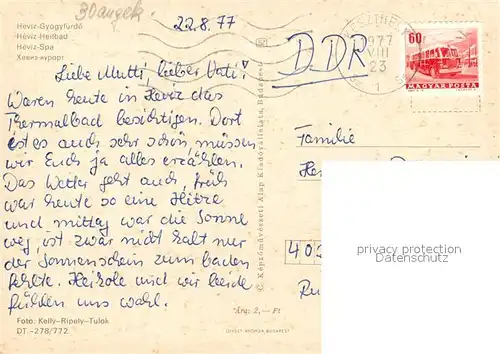 30 angek.
Hévíz-Gyógyfürdő
Hévíz-Heilbad
Hévíz-Spa
Хевиз-курорт
22.8.77
DDR
1977
VIII
23
60
MAGYAR POSTA
Liebe Mutti, lieber Vati!
Waren heute in Heviz das
Thermalbad besichtigen. Dort
ist es auch sehr schön, müssen
wir Euch ja alles erzählen.
Das Wetter geht auch, früh
war heute so eine Hitze
und mittag war die Sonne
weg, ist zwar nicht kalt nur
der Sonnenschein zum baden
fehlte. Heikole und wir beide
fühlen uns wohl.
Familie
402
protected by copyright
Personal Data Protection
C. Képzőművészeti Alap Kiadóvállalata, Budapest
Ára: 2,— Ft
Foto: Kelly-Ripely-Tulok
DT.-278/772.
OFFSET NYOMDA BUDAPEST